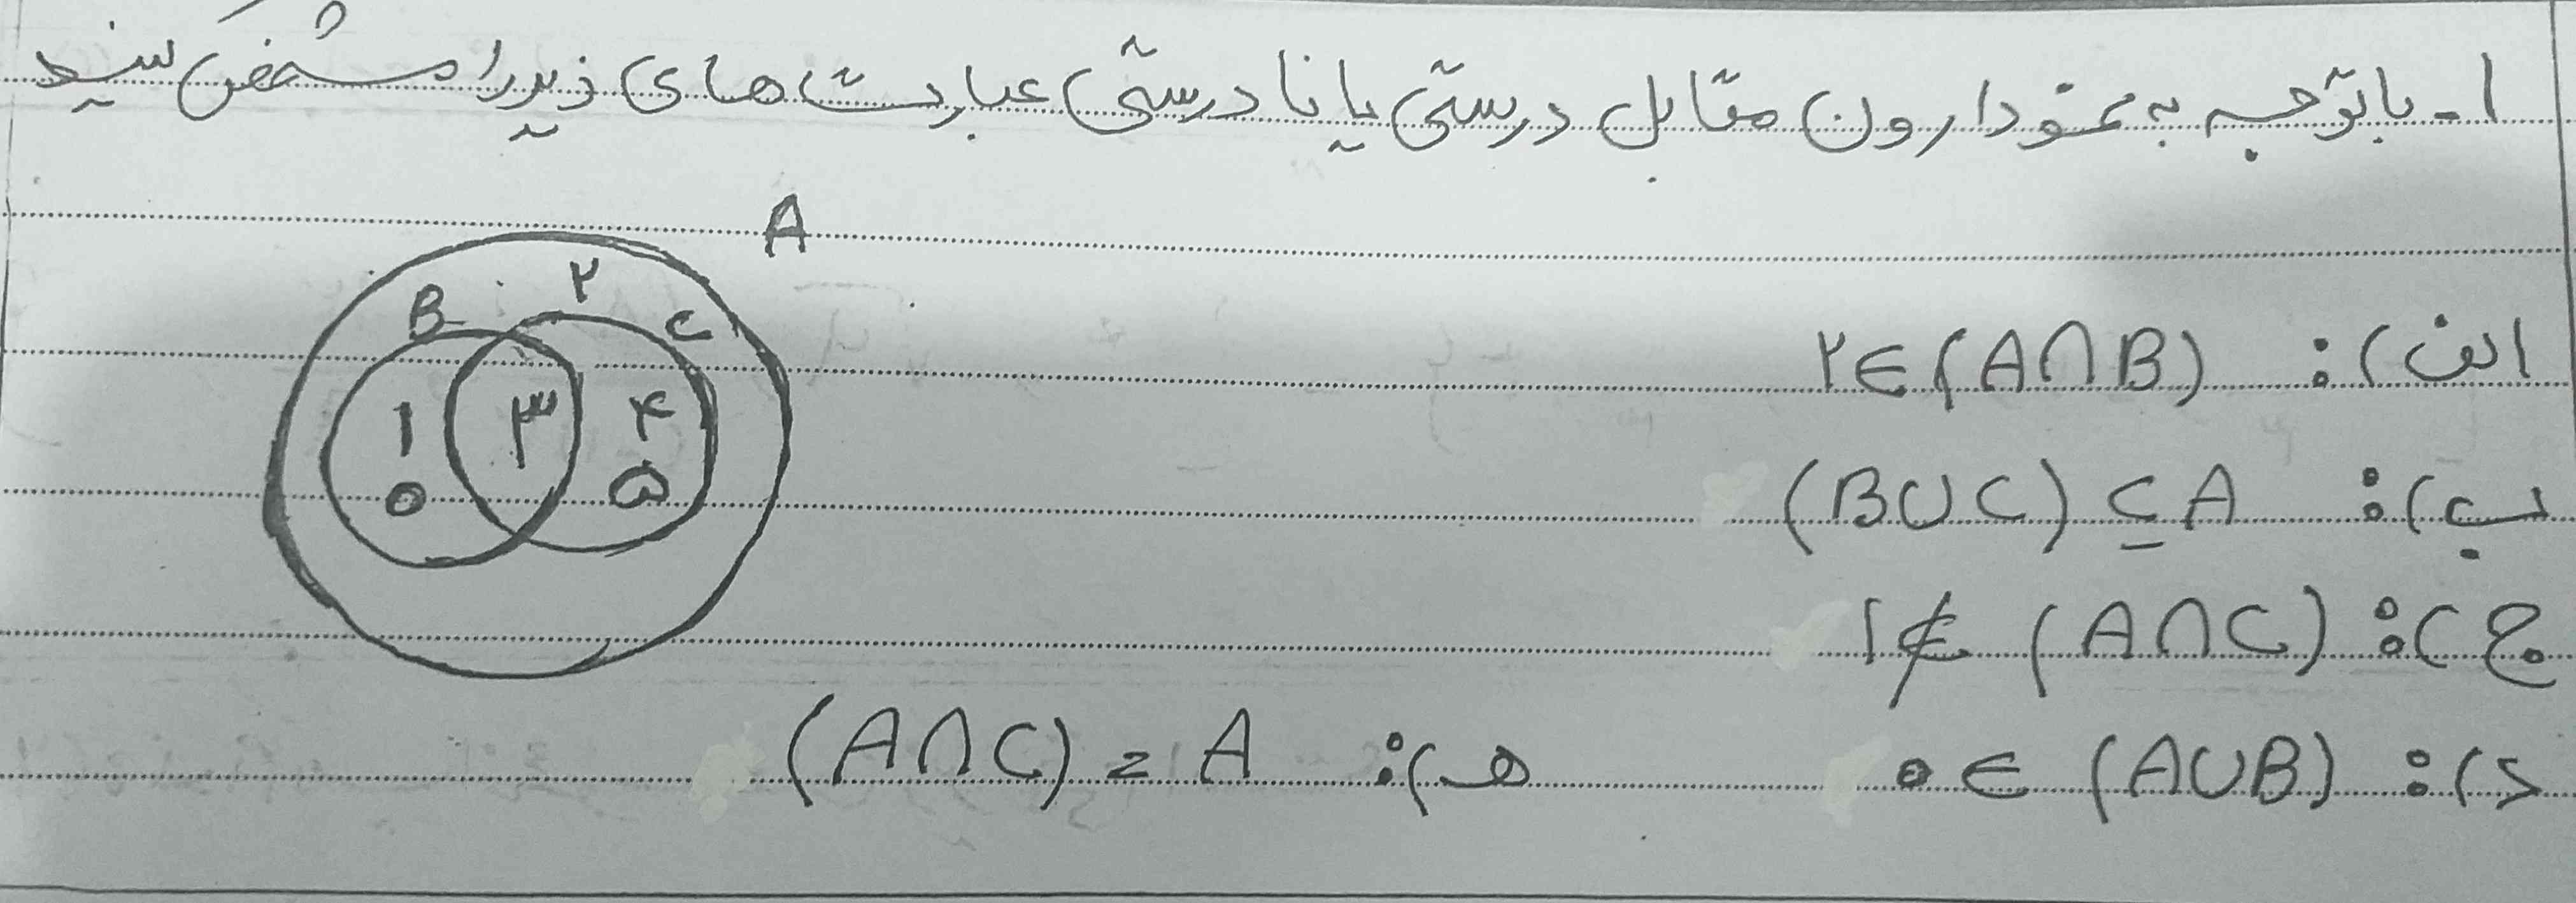 ۱- با توجه به نمودار ون مقابل درستی یا نادرستی عبارت های زیر را مشخص کنید
A
B ۲ C
۱ ۳ ۴
۰ ۵
الف): ۲∈(A∩B)
ب): (B∪C)⊆A
ج): ۱∉(A∩C)
د): ۰∈(A∪B) هـ): (A∩C)=A